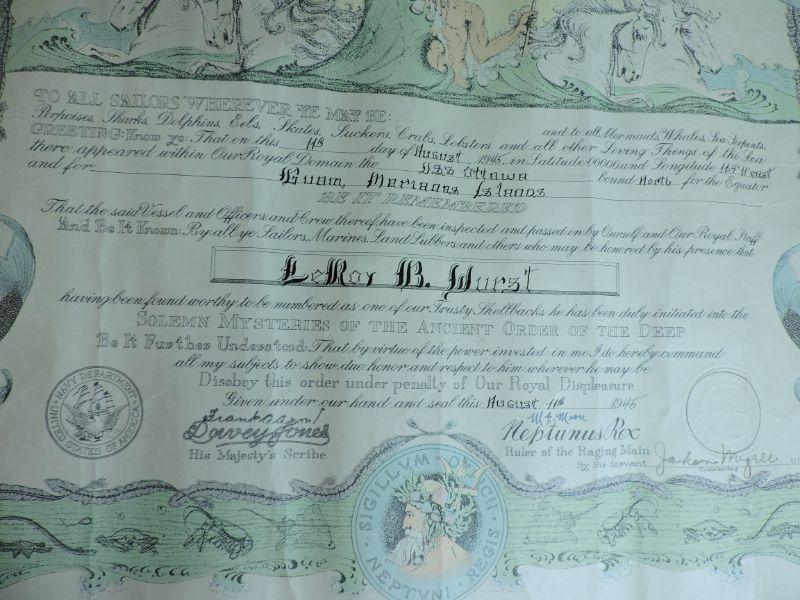 TO ALL SAILORS WHEREVER YE MAY BE: and to all Mermaids, Whales, Sea Serpents,
Porpoises, Sharks, Dolphins, Eels, Skates, Suckers, Crabs, Lobsters and all other Living Things of the Sea
GREETING: Know ye: That on this 11th day of August 1945, in Latitude 00000 and Longitude
there appeared within Our Royal Domain the USS Ottawa bound North for the Equator
and for Guam, Marianas Islands
BE IT REMEMBERED
That the said Vessel and Officers and Crew thereof have been inspected and passed on by Ourself and Our Royal Staff
And Be It Known: By all ye Sailors, Marines, Land Lubbers and others who may be honored by his presence that
LeRoy B. Wurst
having been found worthy to be numbered as one of our Trusty Shellbacks he has been duly initiated into the
SOLEMN MYSTERIES OF THE ANCIENT ORDER OF THE DEEP
Be It Further Understood: That by virtue of the power invested in me I do hereby command
all my subjects to show due honor and respect to him wherever he may be
Disobey this order under penalty of Our Royal Displeasure
Given under our hand and seal this August 11th 1945
Davey Jones
His Majesty's Scribe
M E Moore
Neptunus Rex
Ruler of the Raging Main
By His Servant
NAVY DEPARTMENT
UNITED STATES OF AMERICA
SIGILLVM
NEPTVNI REGIS